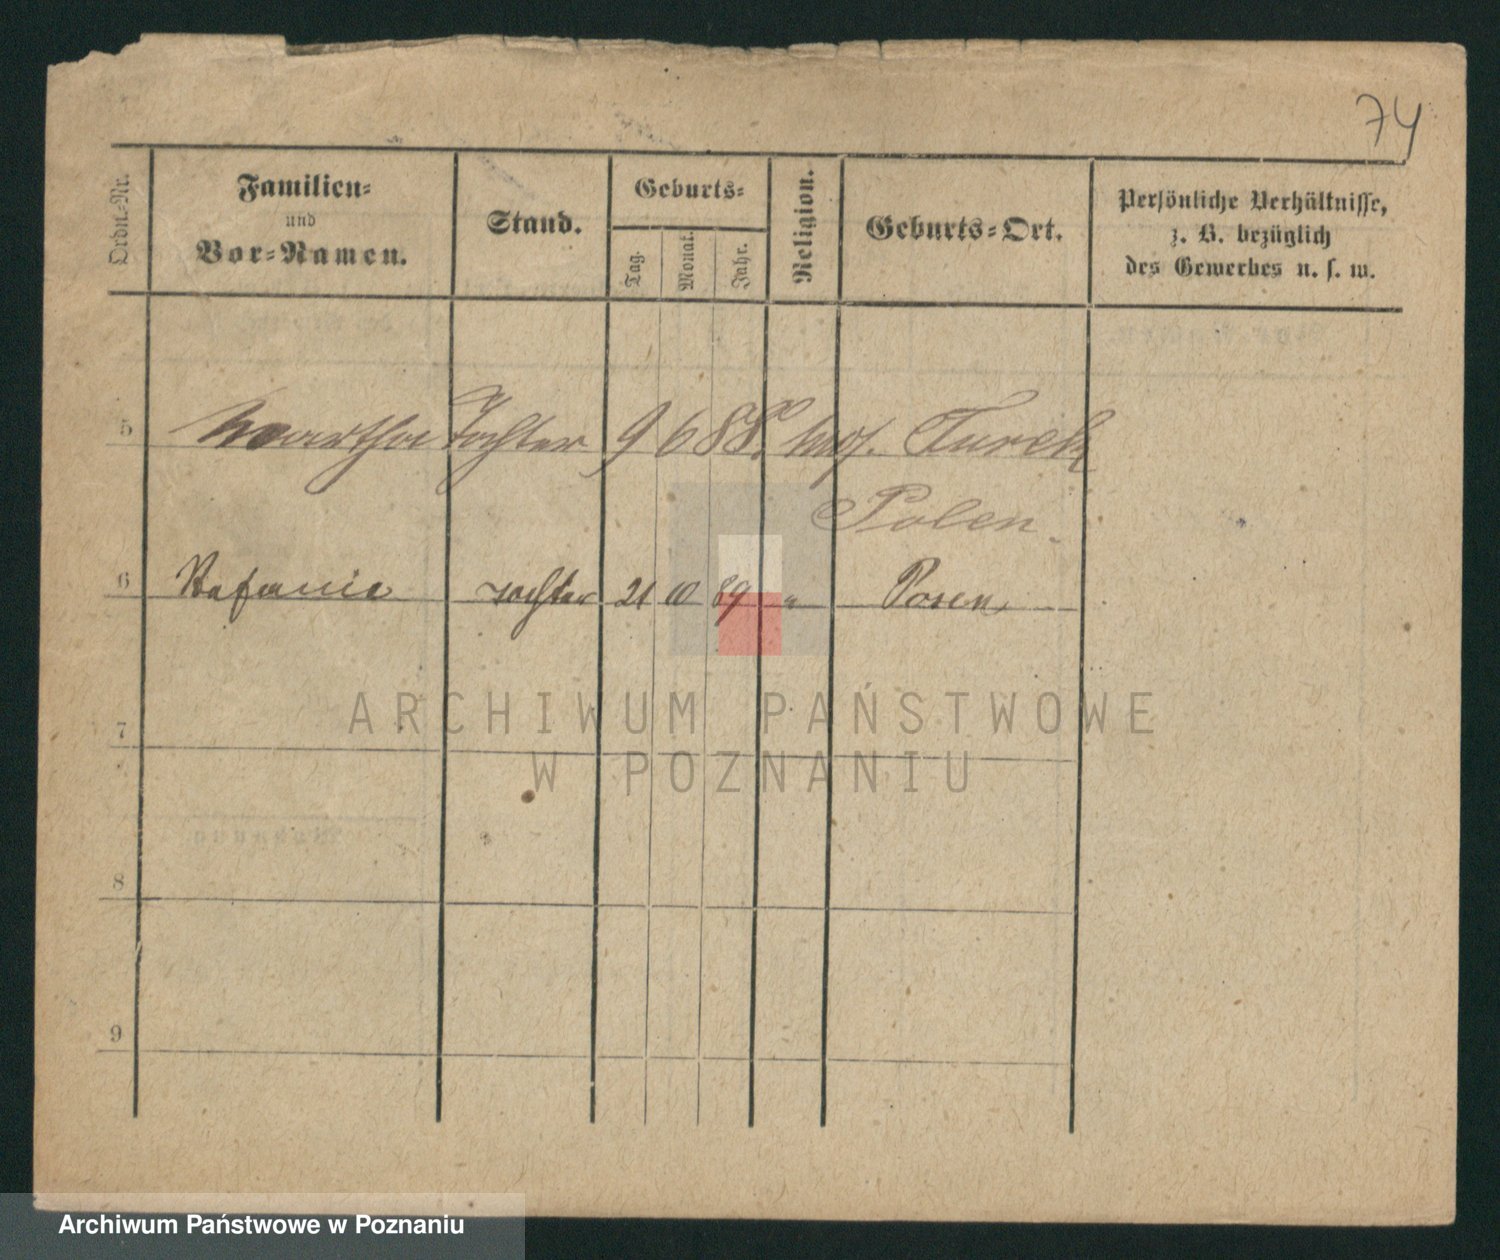 74
Ordn.-Nr.
Familien-
und
Vor-Namen.
Stand.
Geburts-
Tag.
Monat.
Jahr.
Religion.
Geburts-Ort.
Persönliche Verhältnisse,
z. B. bezüglich
des Gewerbes u. s. w.
5 Martha Tochter 9 6 88. Turek
Polen
6 Stefanie Tochter 21 10 89 " Posen
7
8
9
ARCHIWUM PAŃSTWOWE
W POZNANIU
Archiwum Państwowe w Poznaniu